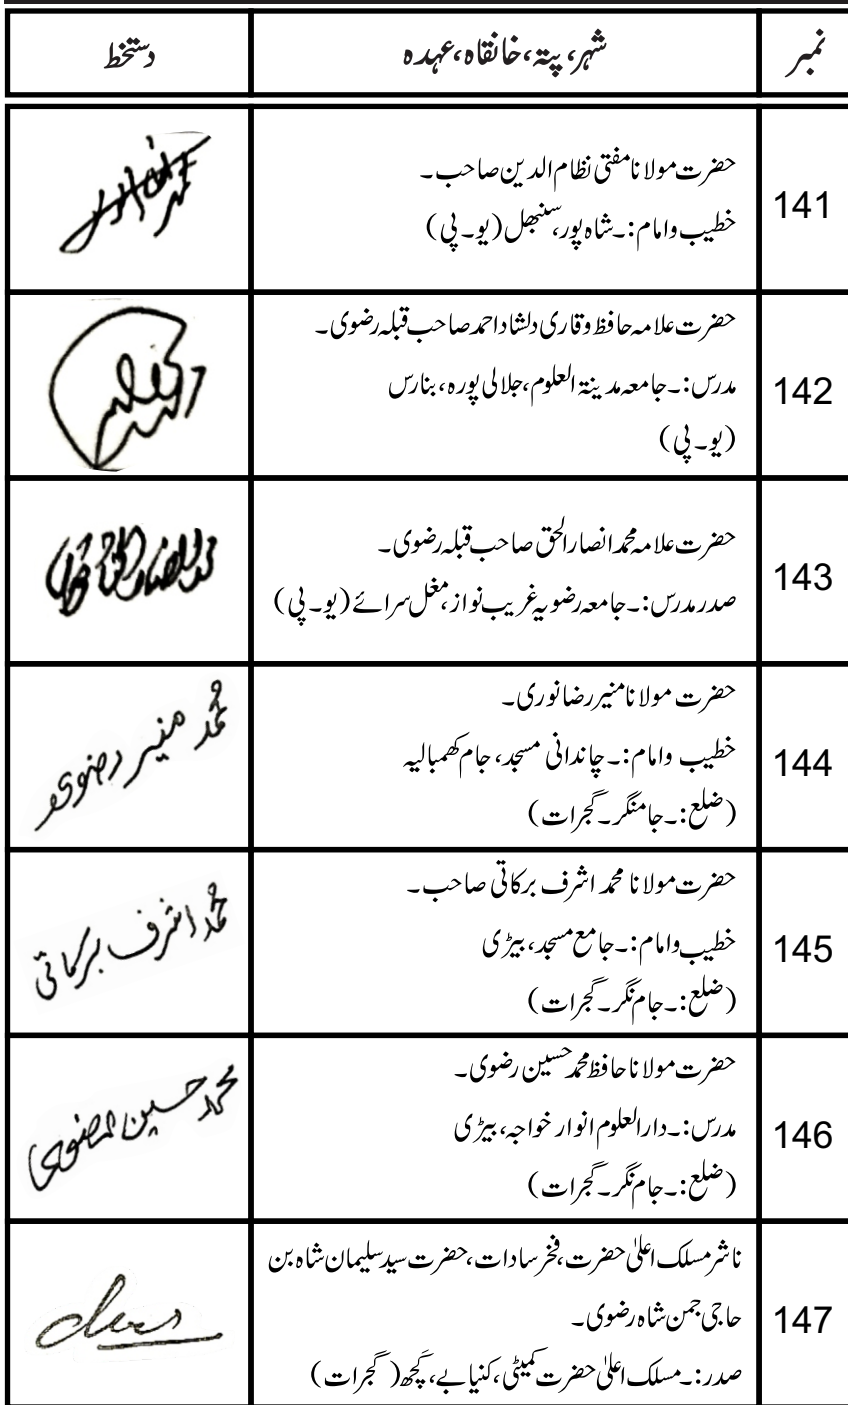 نمبر
شہر، پتہ، خانقاہ، عہدہ
دستخط
141
حضرت مولانا مفتی نظام الدین صاحب۔
خطیب وامام:۔شاہ پور، سنبھل (یو۔پی)
142
حضرت علامہ حافظ وقاری دلشاد احمد صاحب قبلہ رضوی۔
مدرس:۔جامعہ مدینۃ العلوم، جلالی پورہ، بنارس
(یو۔پی)
143
حضرت علامہ محمد انصار الحق صاحب قبلہ رضوی۔
صدر مدرس:۔جامعہ رضویہ غریب نواز، مغل سرائے (یو۔پی)
144
حضرت مولانا منیر رضا نوری۔
خطیب وامام:۔چاندانی مسجد، جام کھمبالیہ
(ضلع:۔جامنگر۔گجرات)
محمد منیر رضوی
145
حضرت مولانا محمد اشرف برکاتی صاحب۔
خطیب وامام:۔جامع مسجد، بیڑی
(ضلع:۔جام نگر۔گجرات)
محمد اشرف برکاتی
146
حضرت مولانا حافظ محمد حسین رضوی۔
مدرس:۔دارالعلوم انوار خواجہ، بیڑی
(ضلع:۔جام نگر۔گجرات)
محمد حسین رضوی
147
ناشر مسلک اعلیٰ حضرت، فخر سادات، حضرت سید سلیمان شاہ بن
حاجی جمن شاہ رضوی۔
صدر:۔مسلک اعلیٰ حضرت کمیٹی، کنیابے، کَچھ (گجرات)